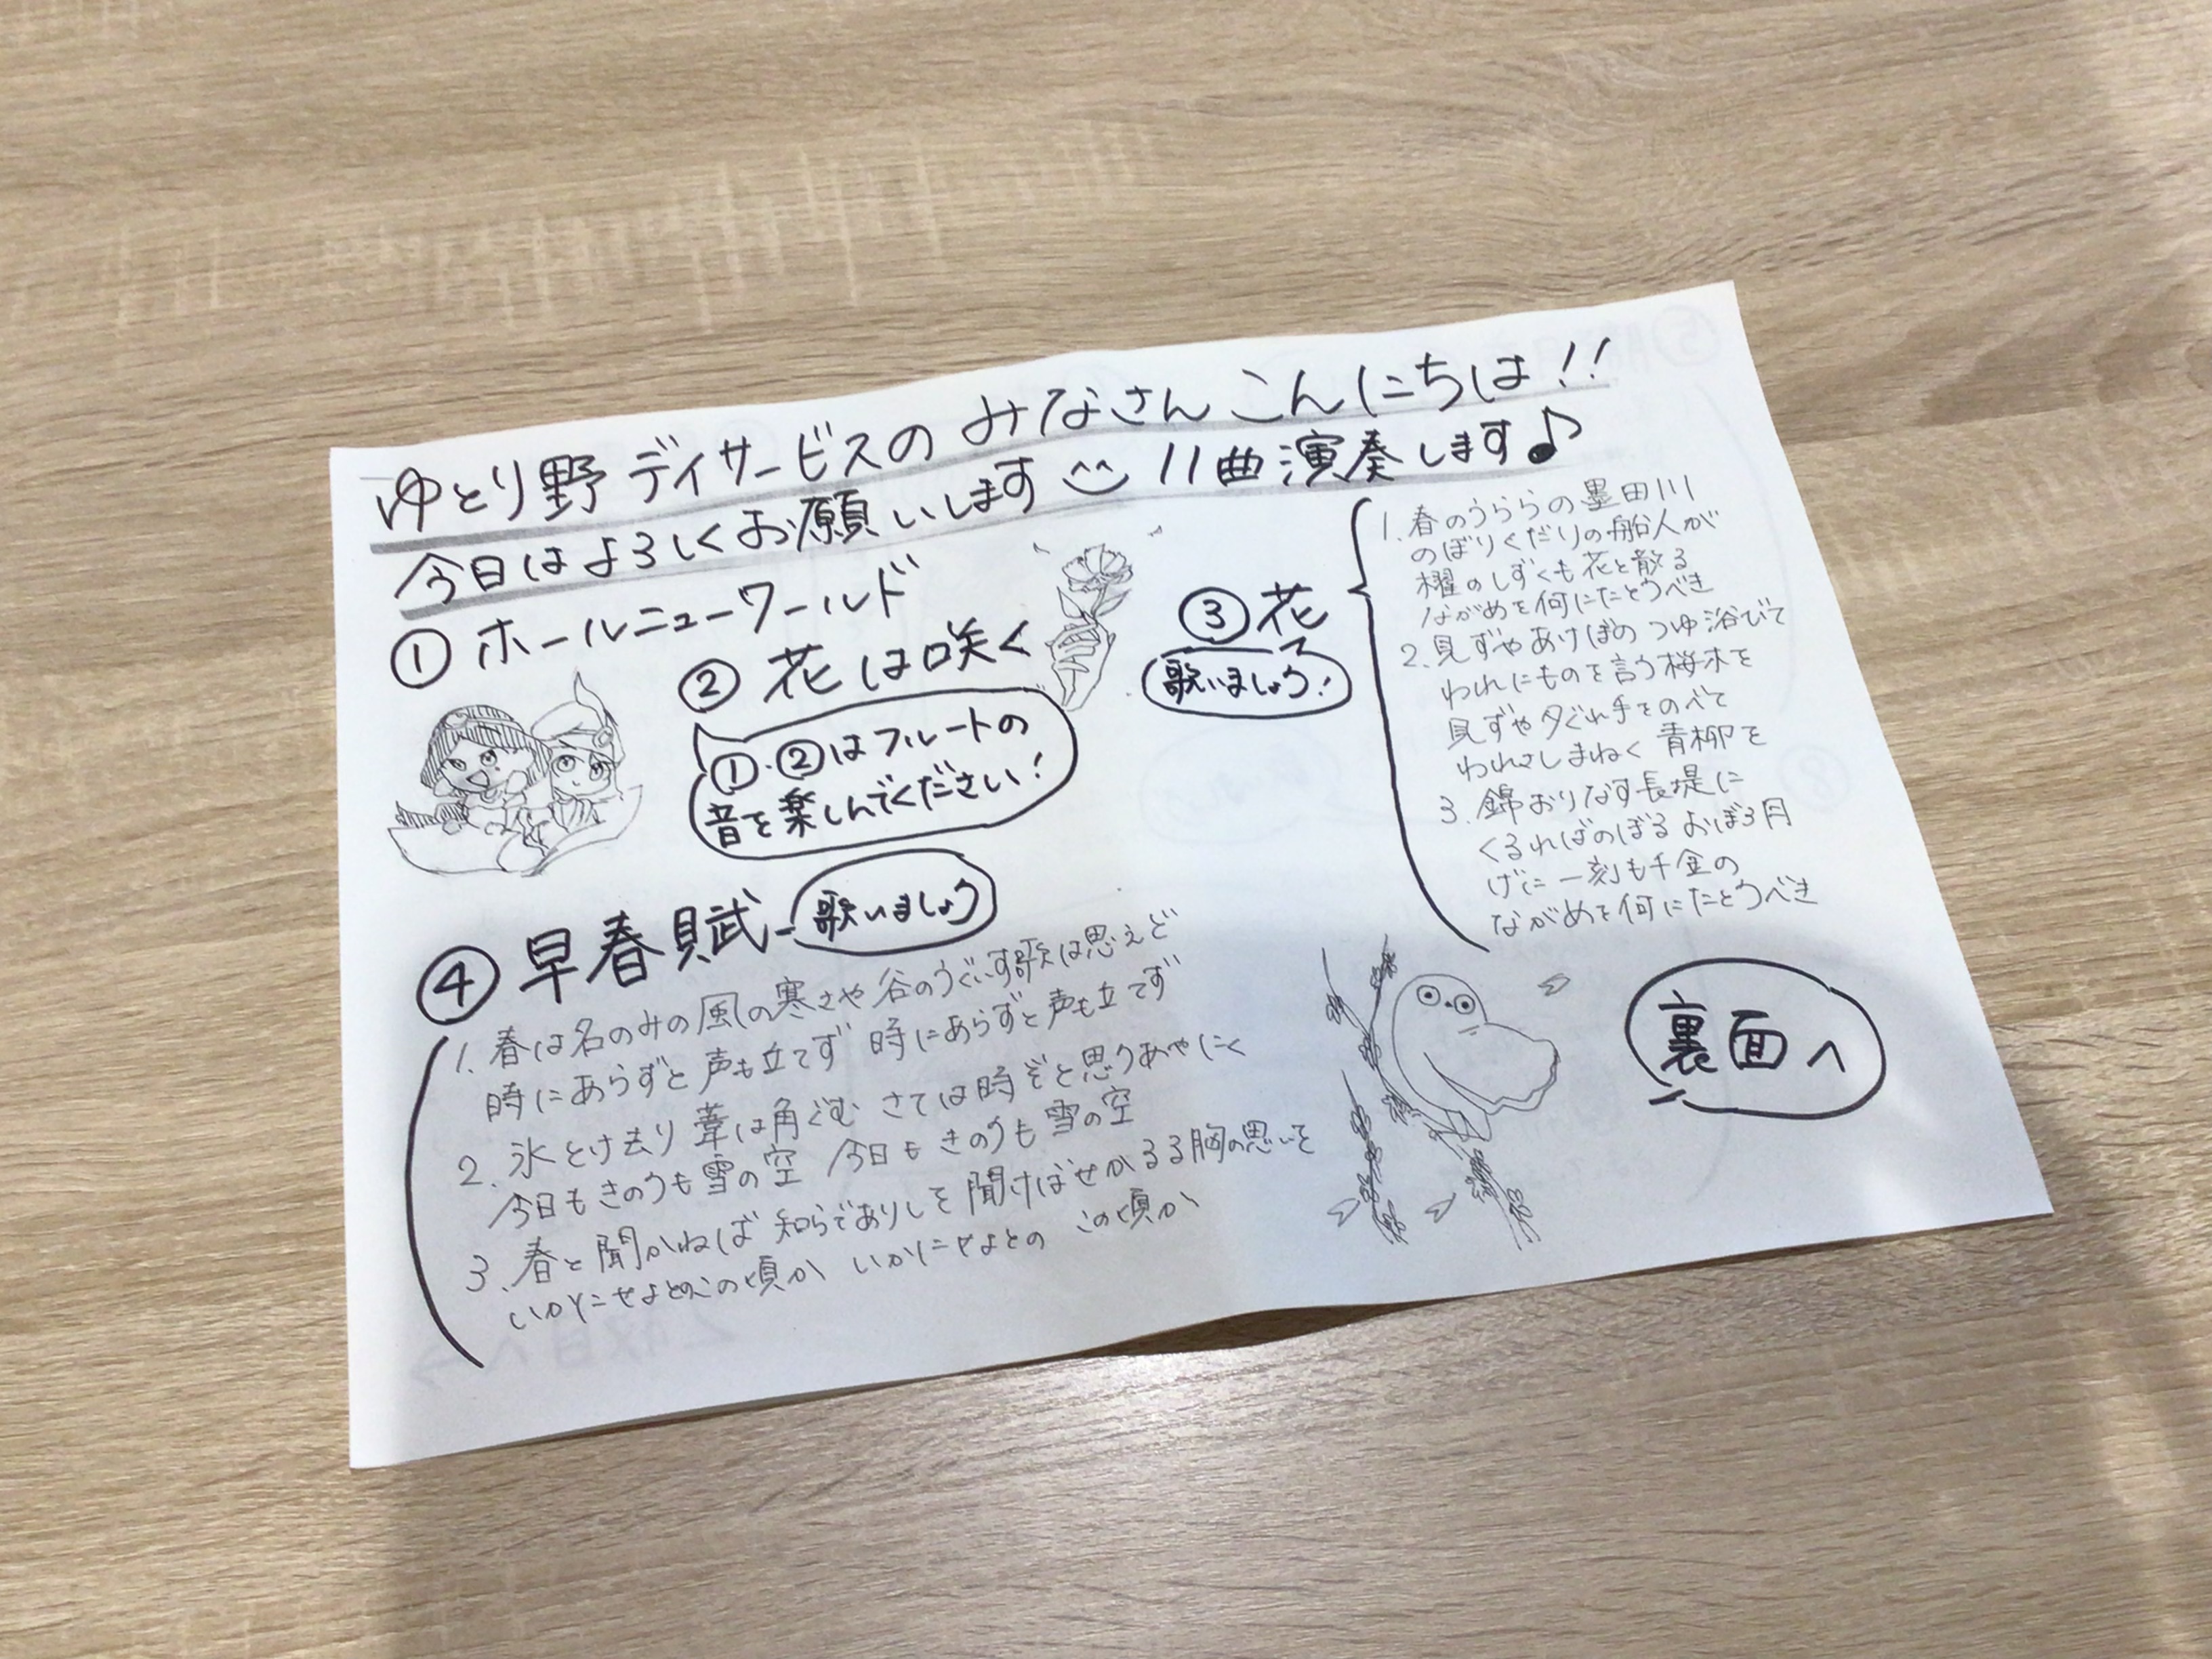 ゆとり野デイサービスのみなさんこんにちは!!
今日はよろしくお願いします 11曲演奏します♪
① ホールニューワールド
② 花は咲く
①・②はフルートの
音を楽しんでください!
③ 花
歌いましょう!
1. 春のうららの墨田川
のぼりくだりの船人が
櫂のしずくも花と散る
ながめを何にたとうべき
2. 見ずやあけぼの つゆ浴びて
われにものを言う桜木を
見ずや夕ぐれ手をのべて
われさしまねく 青柳を
3. 錦おりなす長堤に
くるればのぼる おぼろ月
げに一刻も千金の
ながめを何にたとうべき
④ 早春賦
歌いましょう
1. 春は名のみの風の寒さや 谷のうぐいす歌は思えど
時にあらずと声も立てず 時にあらずと声も立てず
2. 氷とけ去り 葦は角ぐむ さては時ぞと思うあやにく
今日もきのうも雪の空 今日もきのうも雪の空
3. 春と聞かねば 知らでありしを 聞けばせかるる胸の思いを
いかにせよとのこの頃か いかにせよとの この頃か
裏面へ